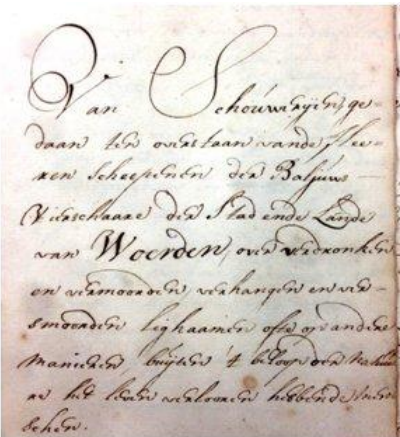 Van Schouwerijen, ge-
daan ter overstaan vande Hee-
ren Scheepenen der Baljuws
Vierschaare der Stad ende Lande
van Woerden, over verdronken
en vermoorden, verhangen en ver-
smoorden lighaamen ofte op andere
manieren, buijten 't beloop der Natuu
re het leven verlooren hebbende Men
schen.